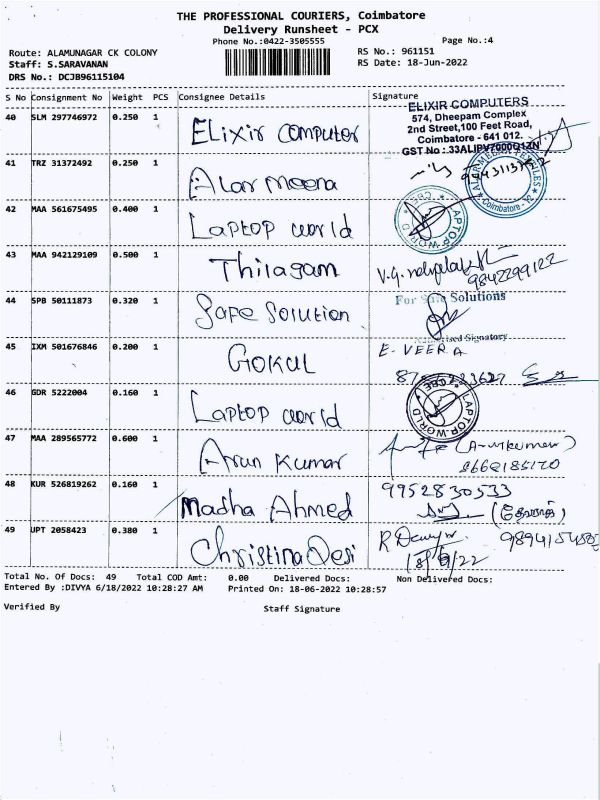 THE PROFESSIONAL COURIERS, Coimbatore
Delivery Runsheet - PCX
Phone No.:0422-3505555
Page No.:4
Route: ALAMUNAGAR CK COLONY
Staff: S.SARAVANAN
DRS No.: DCJB96115104
RS No.: 961151
RS Date: 18-Jun-2022
S No Consignment No Weight PCS Consignee Details Signature
40 SLM 297746972 0.250 1 ELixir computer
ELIXIR COMPUTERS
574, Dheepam Complex
2nd Street,100 Feet Road,
Coimbatore - 641 012.
GST No : 33ALIPV7000Q1ZN
41 TRZ 31372492 0.250 1 Alar meena
Coimbatore - 12
42 MAA 561675495 0.400 1 Laptop world
LAPTOP WORLD CBE
43 MAA 942129109 0.500 1 Thilagam
9842299122
44 SPB 50111873 0.320 1 Safe Solution
For Safe Solutions
Authorised Signatory
45 IXM 501676846 0.200 1 GOKUL
E. VEERA
46 GDR 5222004 0.160 1 Laptop world
LAPTOP WORLD CBE
47 MAA 289565772 0.600 1 Arun Kumar
48 KUR 526819262 0.160 1 Madha Ahmed
9952830533
49 UPT 2058423 0.380 1 Christina Desi
18/6/22
Total No. Of Docs: 49 Total COD Amt: 0.00 Delivered Docs: Non Delivered Docs:
Entered By :DIVYA 6/18/2022 10:28:27 AM Printed On: 18-06-2022 10:28:57
Verified By Staff Signature